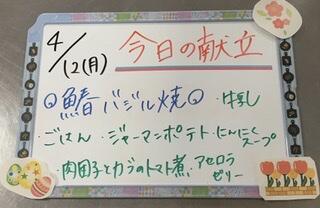 4/12(月) 今日の献立
◎鰆バジル焼◎ ・牛乳
・ごはん ・ジャーマンポテト ・にんにくスープ
・肉団子とカブのトマト煮 ・アセロラゼリー